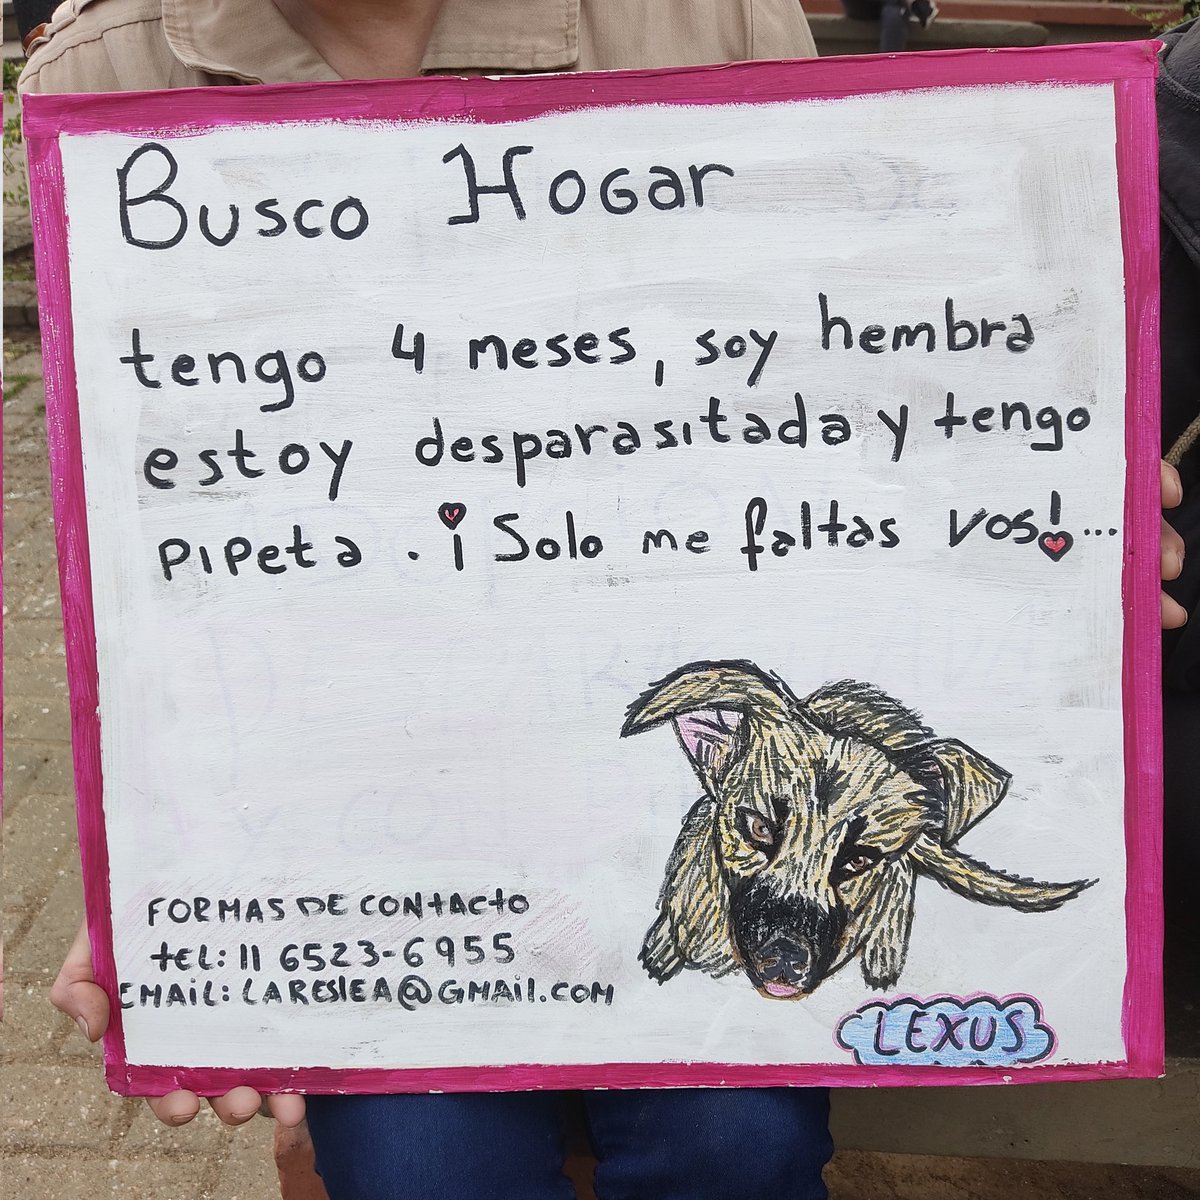 Busco Hogar
tengo 4 meses, soy hembra
estoy desparasitada y tengo
pipeta. ¡Solo me faltas vos!...
FORMAS DE CONTACTO
tEL: 11 6523-6955
EMAIL: LARESLEA@GMAIL.COM
LEXUS